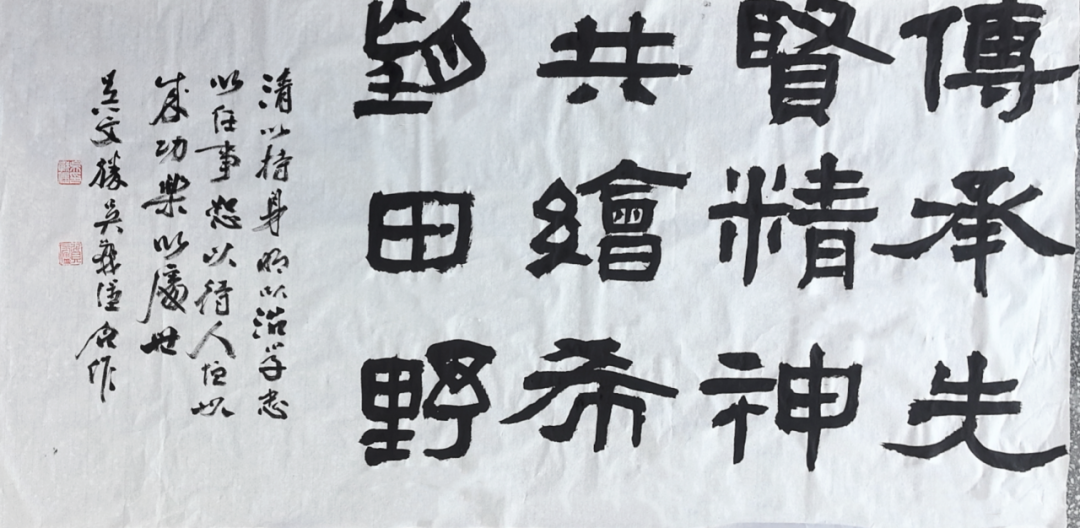 傳承先
賢精神
共繪希
望田野
清以持身明以治学忠
以任事恕以待人恒以
成功樂以處世
吳文勝吳
合作